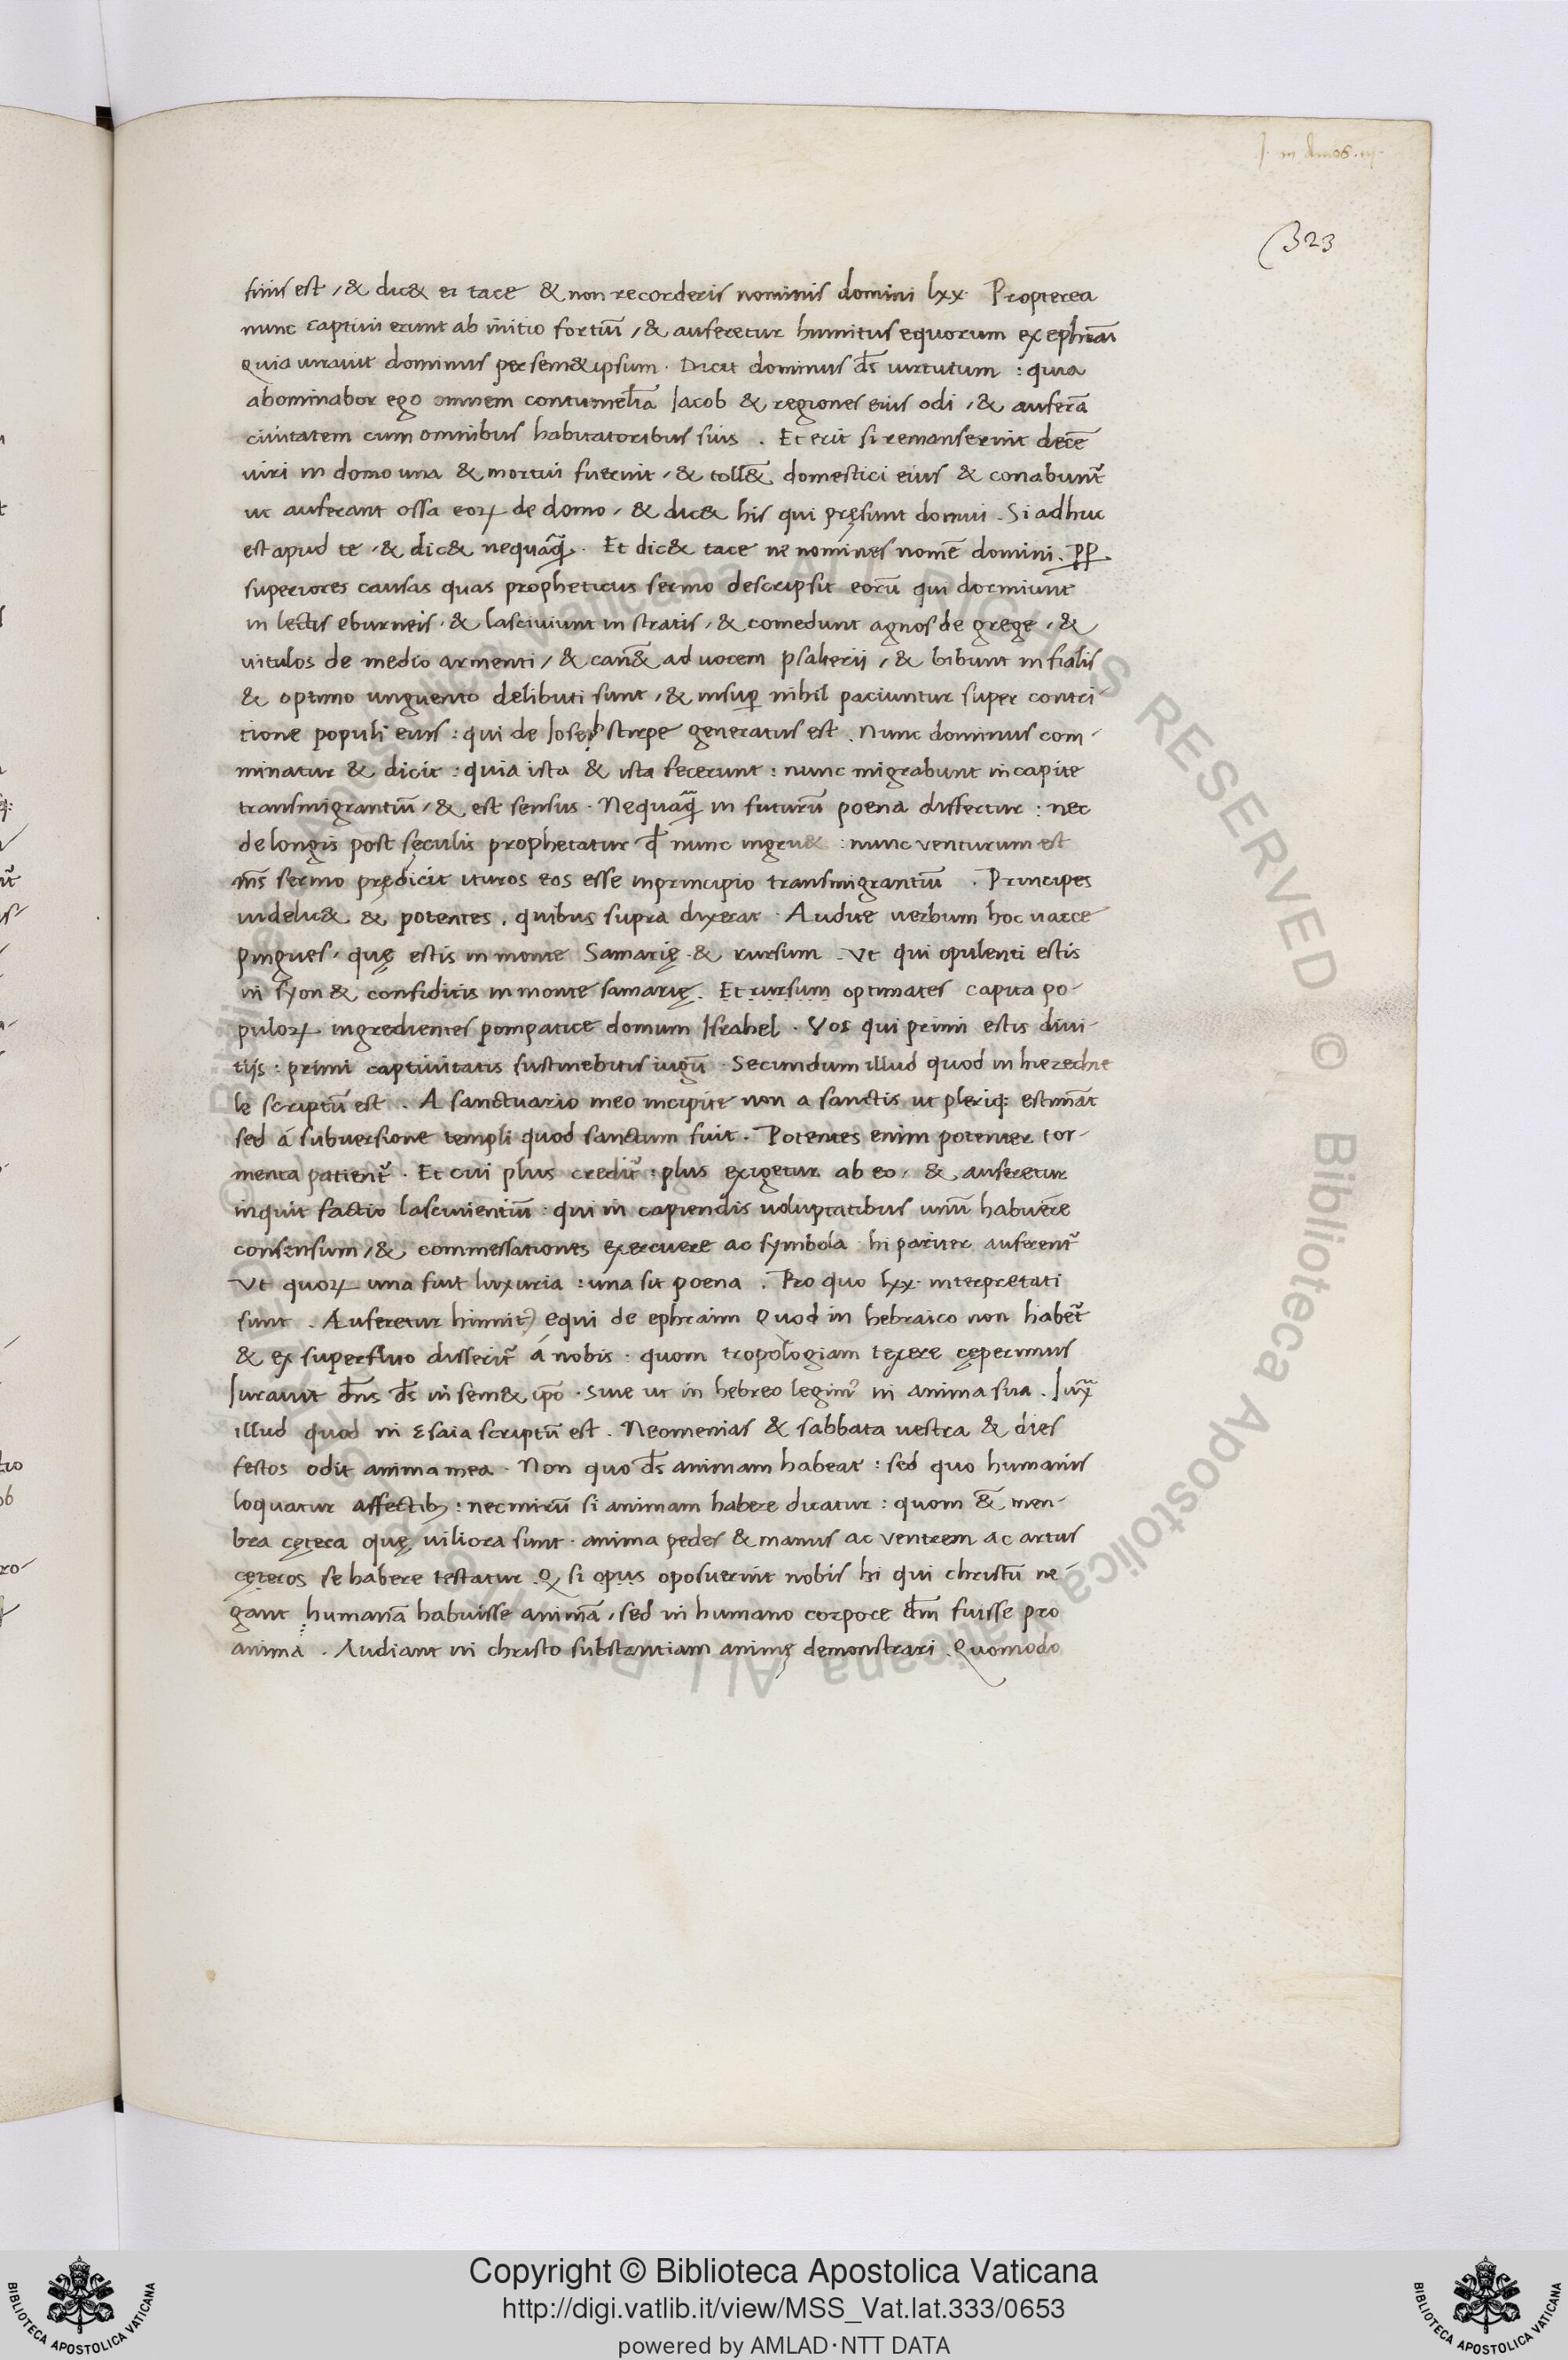 J. in Amos. iij.
323
finis est, & dic& ei tace & non recorderis nominis domini lxx. Propterea
nunc captiui erunt ab initio fortiū, & auferetur hinnitus equorum ex ephraī
Quia iurauit dominus per sem&ipsum. Dicit dominus d̄s uirtutum : quia
abominabor ego omnem contumeliā Jacob & regiones eius odi, & auferā
ciuitatem cum omnibus habitatoribus suis . Et erit si remanserint decē
uiri in domo una & mortui fuerint, & toll&̄ domestici eius & conabunt᷑
ut auferant ossa eoꝝ de domo, & dic& his qui pręsunt domui . Si adhuc
est apud te, & dic& nequāꝗ̄. Et dic& tace ne nomines nomē domini. ꝓꝑ
superiores causas quas propheticus sermo descripsit eorū qui dormiunt
in lectis eburneis, & lasciuiunt in stratis, & comedunt agnos de grege, &
uitulos de medio armenti, & can&̄ ad uocem psalterii, & bibunt in fialis
& optimo unguento delibuti sunt, & insuꝑ nihil paciuntur super contri-
tione populi eius : qui de Joseph stirpe generatus est . Nunc dominus com-
minatur & dicit : quia ista & ista fecerunt : nunc migrabunt in capite
transmigrantiū, & est sensus . Nequaꝗ̄ in futurū poena differtur : nec
de longis post sęculis prophetatur ꝙ nunc ingru& : nunc venturum est
m̄s sermo prędicit ituros eos esse in principio transmigrantiū . Principes
uidelic& & potentes. quibus supra dixerat . Audite uerbum hoc uacce
pingues, quę estis in monte Samarię . & rursum . Vt qui opulenti estis
in syon & confiditis in monte samarię. Et rursum optimates capita po-
puloꝝ ingredientes pompatice domum Israhel . Vos qui primi estis diui-
tijs : primi captiuitatis sustinebitis iugū . Secundum illud quod in hiezechie
le scriptū est . A sanctuario meo incipite non a sanctis ut pleriq; estimāt
sed á subuersione templi quod sanctum fuit . Potentes enim potenter tor-
menta patient᷑ . Et cui plus credit᷑ : plus exigetur ab eo, & auferetur
inquit factio lasciuientiū : qui in capiendis uoluptatibus unū habuēre
consensum, & commessationes exercuere ac symbola hi pariter auferent᷑
Vt quoꝝ una fuit luxuria : una sit poena . Pro quo lxx. interpretati
sunt . Auferetur hinnitꝰ equi de ephraim Quod in hebraico non habet᷑
& ex superfluo disserit᷑ á nobis . quom tropologiam texere cępermus
Jurauit dn̄s d̄s in sem& ip̄o . Siue ut in hebreo legimꝰ in anima sua . Jux̄
illud quod in Esaia scriptū est . Neomenias & sabbata uestra & dies
festos odit anima mea . Non quo d̄s animam habeat : sed quo humanis
loquatur affectibꝫ : nec mirū si animam habere dicatur : quom &̄ men-
bra cętera quę uiliora sunt . anima pedes & manus ac ventrem ac artus
cęteros se habere testatur . Ꝙ si opus oposuerint nobis hi qui christū ne-
gant humanā habuisse animā, sed in humano corpore dm̄ fuisse pro
anima . Audiant in christo substantiam animę demonstrari . Quomodo
Copyright © Biblioteca Apostolica Vaticana
http://digi.vatlib.it/view/MSS_Vat.lat.333/0653
powered by AMLAD·NTT DATA